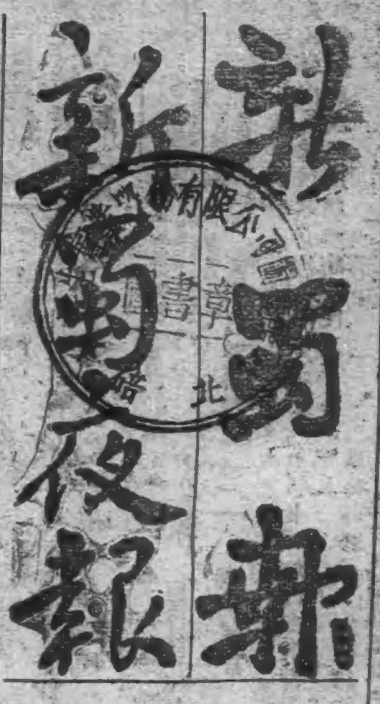 新蜀報
新蜀夜報
有限公司圖
圖書章
北碚